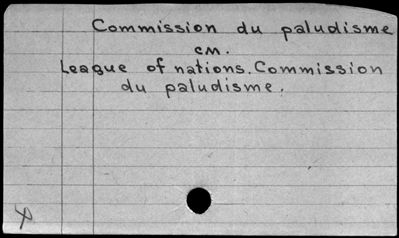 Commission du paludisme
см.
League of nations. Commission
du paludisme.